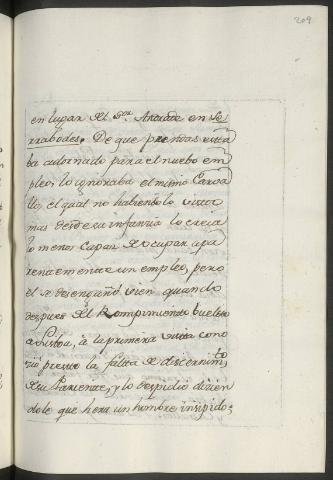 209
en lugar del Sor. Andrade en Se
rrabodes. De que prendas esta
ba adornado para el nuebo em
pleo, lo ignoraba el mismo Carva
llo, el qual no habiendolo visto
mas desde su infanzia lo creia
lo menos capaz de ocupar apa
rentemente un empleo, pero
el se desengañó vien quando
despues del Rompimiento buelto
a Lisboa, à la primera visita cono
zió presto la falta de discernimto.
de su Pariente, y lo despidió dizien
dole que hera un hombre insipido,